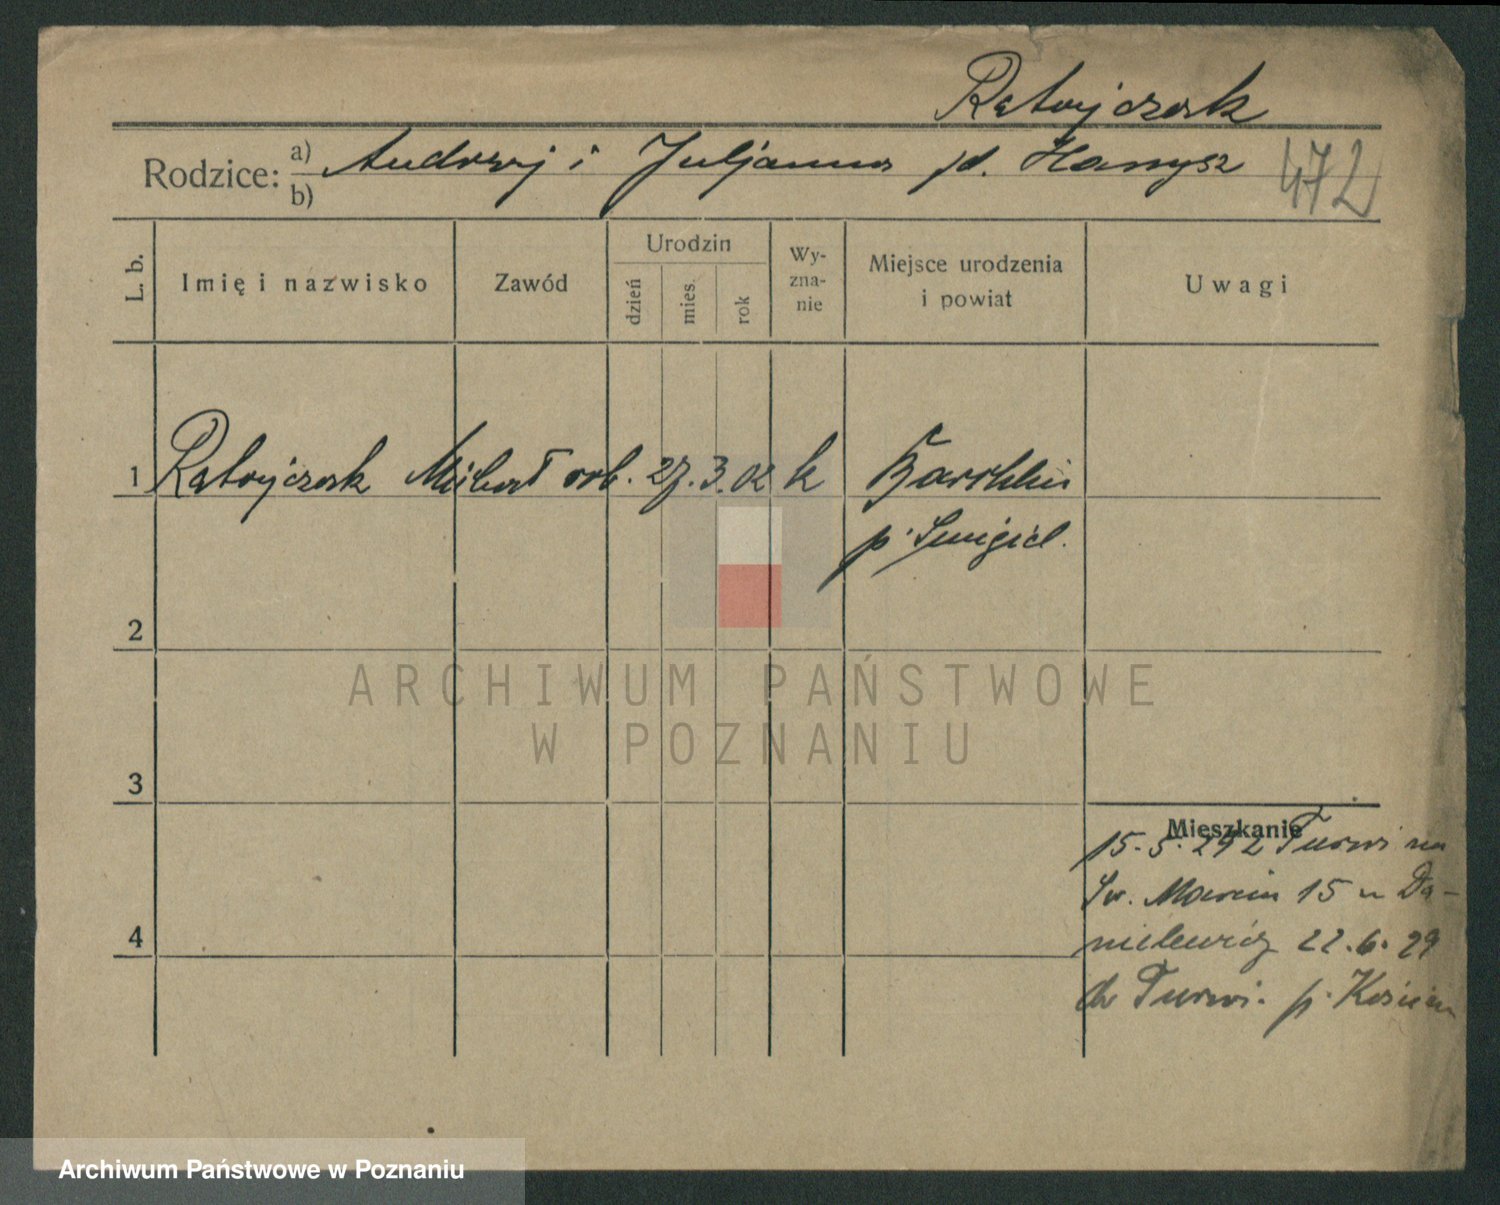 Ratajczak
Rodzice: a) Andrzej i Juljanna d. Hanysz 472
b)
L. b. Imię i nazwisko Zawód Urodzin dzień mies. rok Wy-zna-nie Miejsce urodzenia i powiat Uwagi
1 Ratajczak Michał rob. 27. 3. 02 k
p. Śmigiel.
2
ARCHIWUM PAŃSTWOWE
W POZNANIU
3
Mieszkanie
15. 5. 29 z Turwi na
Św. Marcin 15 u Da-
nielewicz 22. 6. 29
do Turwi. p. Kościan
4
Archiwum Państwowe w Poznaniu